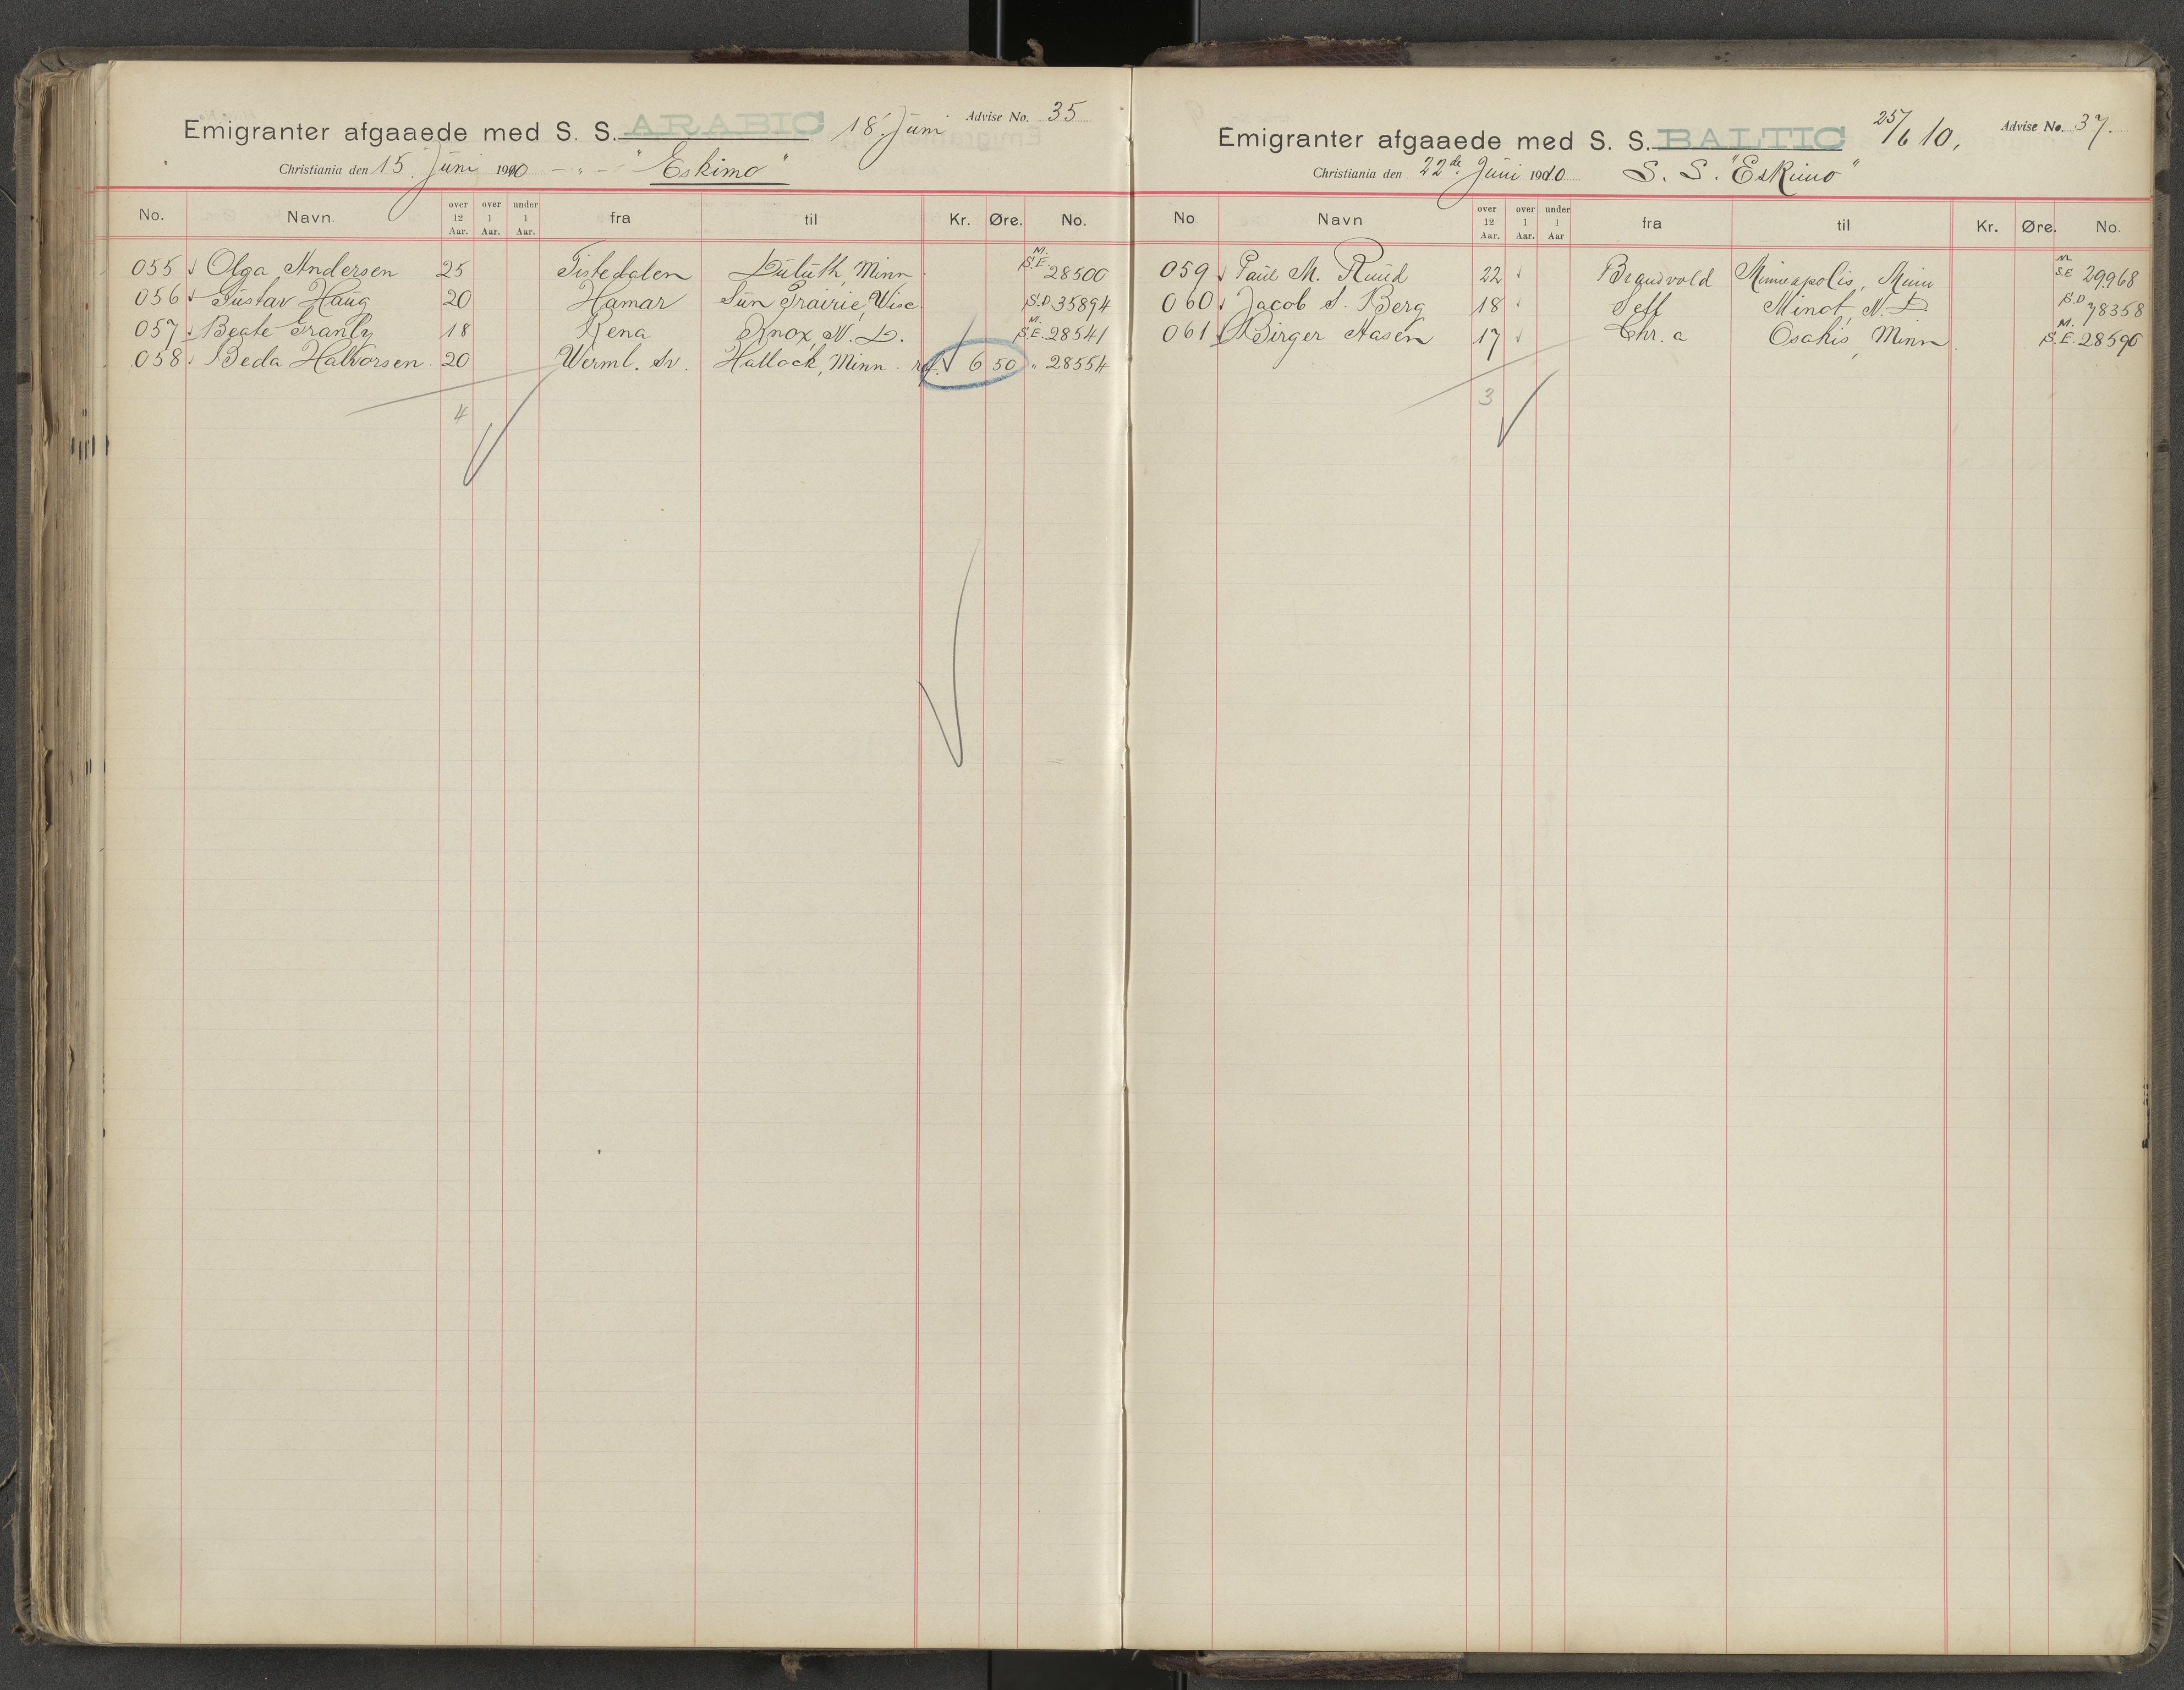 Emigranter afgaaede med S. S. ARABIC 18' Juni Advise No. 35
Christiania den 15. Juni 1910 - " - "Eskimo"
No. Navn. over 12 Aar. over 1 Aar. under 1 Aar. fra til Kr. Øre. No.
055 Olga Andersen 25 Tistedalen Duluth, Minn M. S.E. 28500
056 Gustav Haug 20 Hamar Sun Prairie, Wisc. S.D. 35894
057 Beate Granly 18 Rena Knox, N. D. M. S.E. 28541
058 Beda Halvorsen. 20 Werml. Sv. Hallock, Minn. 6 50 " 28554
4
Emigranter afgaaede med S. S. BALTIC 25/6 10. Advise No. 37.
Christiania den 22de Juni 1910 S. S. "Eskimo"
No Navn over 12 Aar. over 1 Aar. under 1 Aar fra til Kr. Øre. No.
059 Paul M. Ruud 22 Minneapolis, Minn M. S.E 29968
060 Jacob S. Berg 18 Minot, N. D. S.D 78358
061 Birger Aasen 17 Chr. a Osakis, Minn. M. S.E. 28590
3